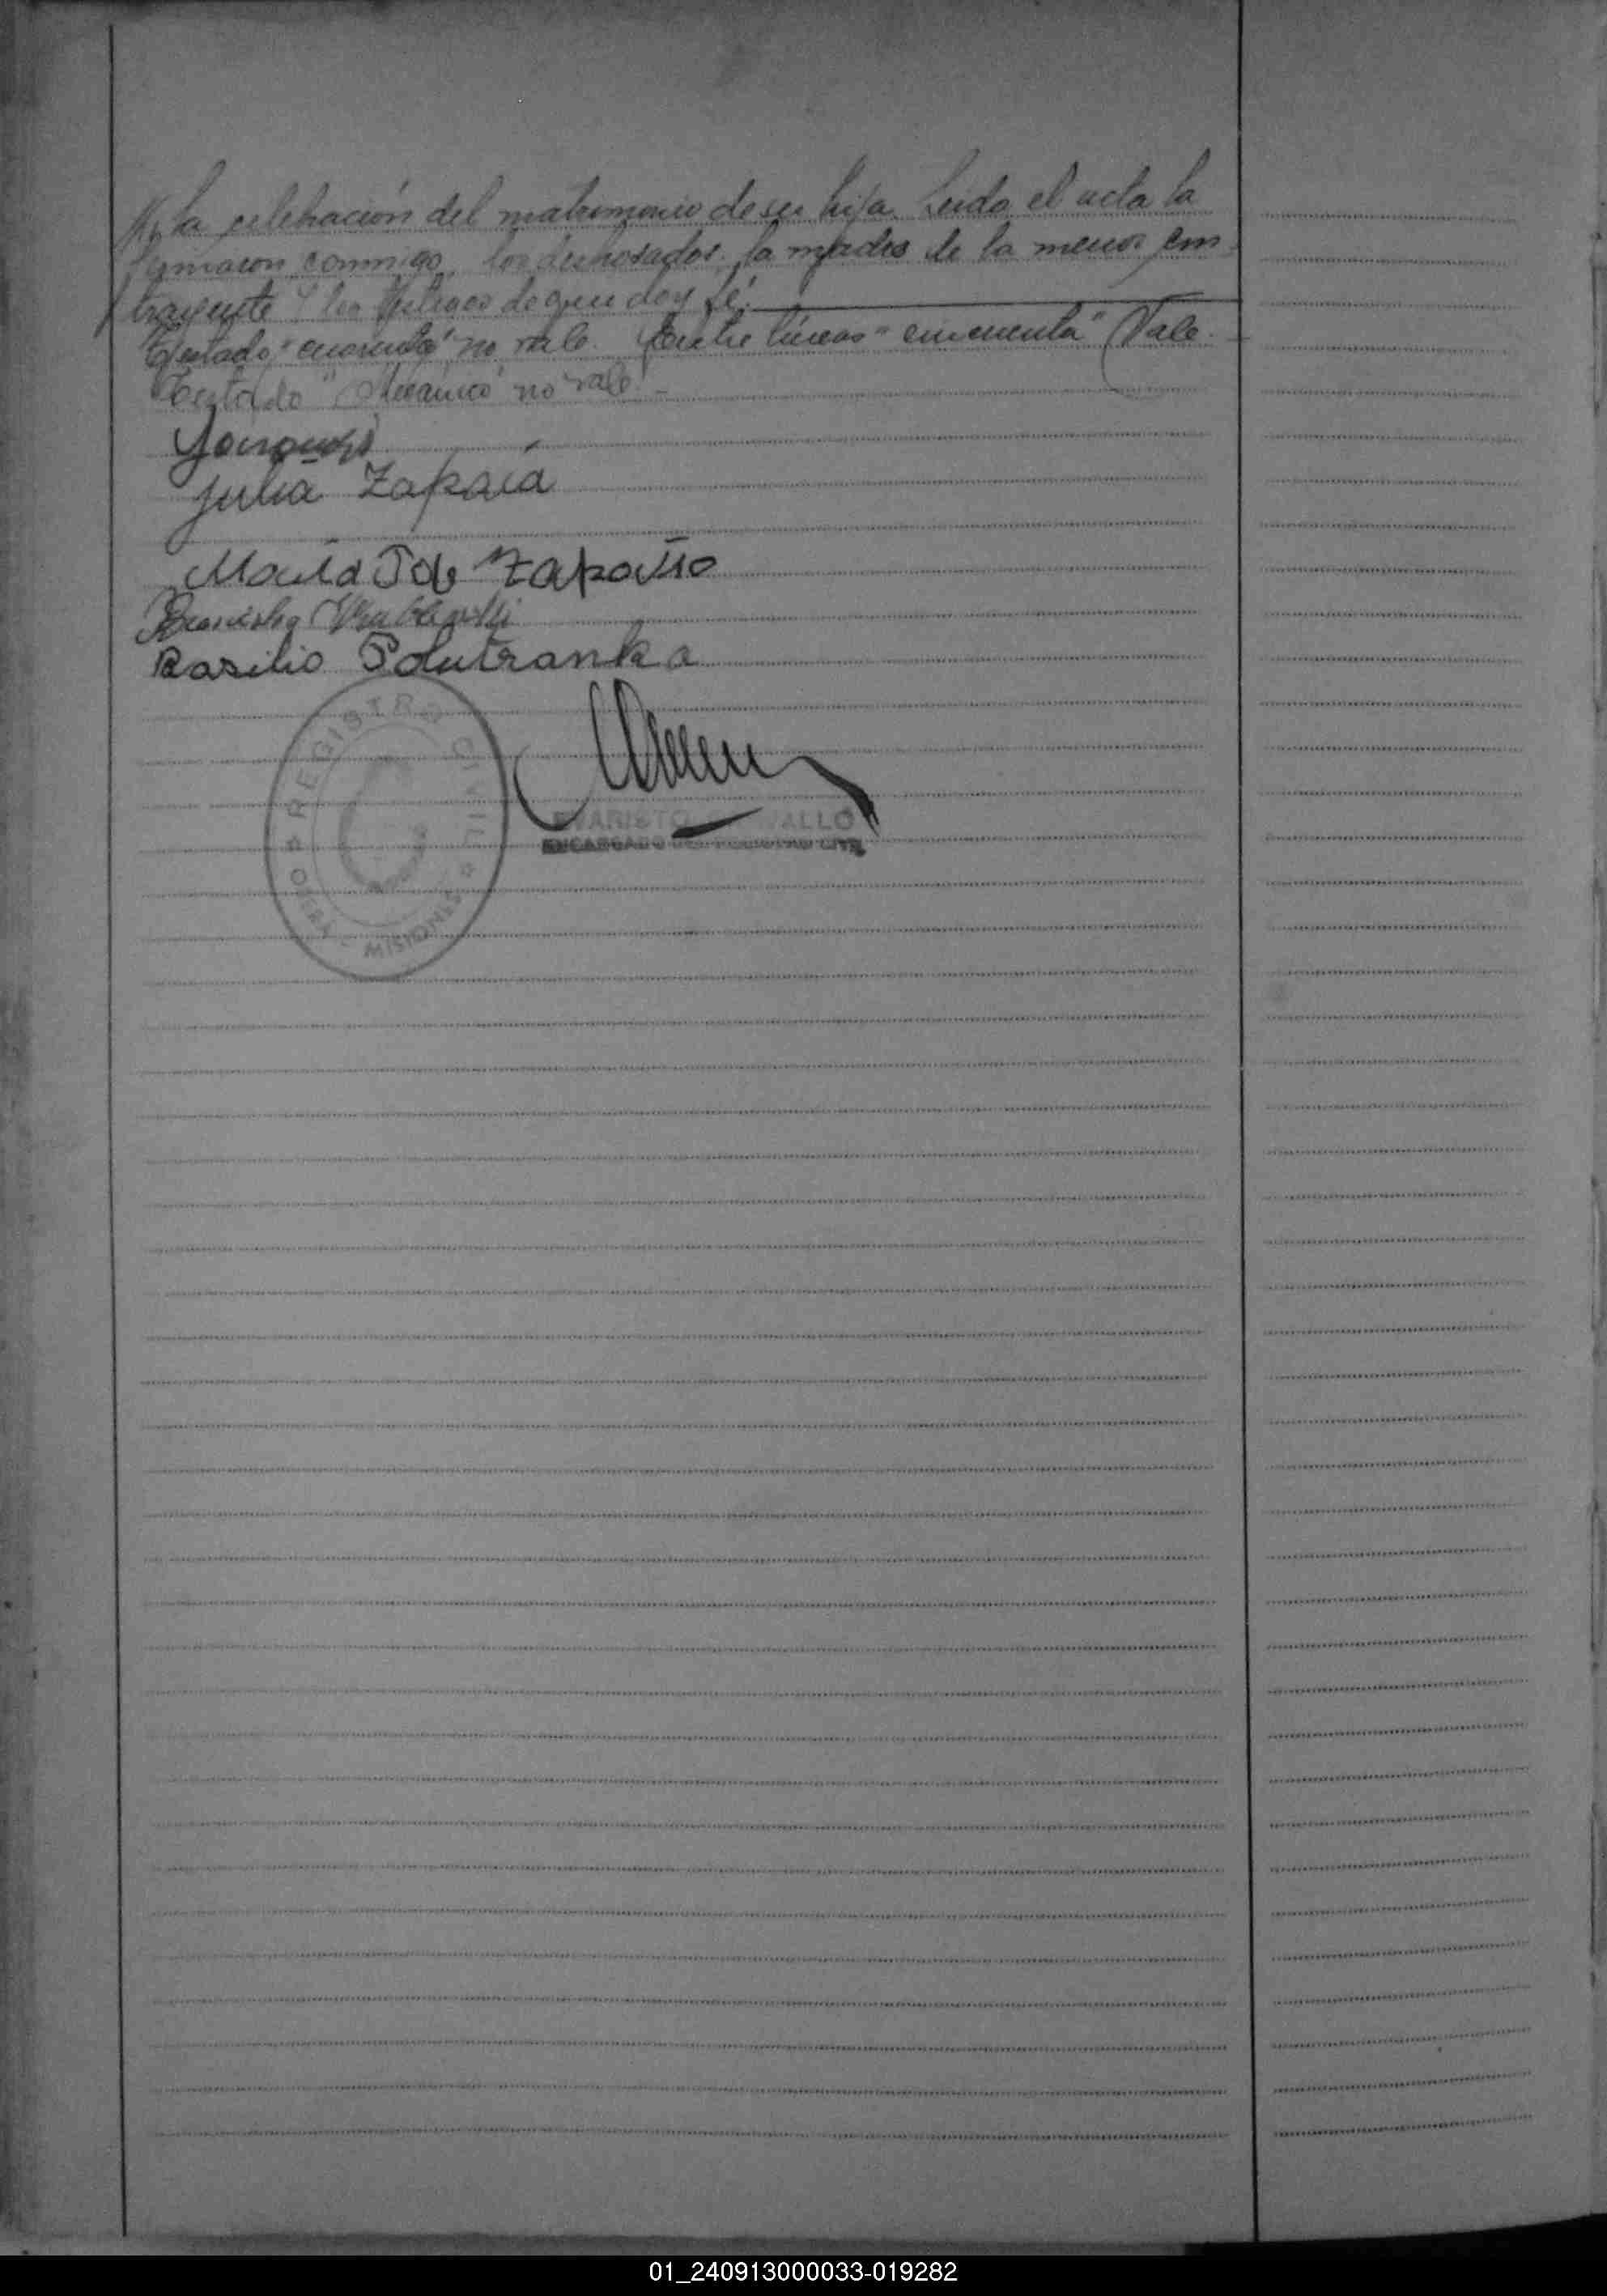 la celebración del matrimonio de su hija. Leida el acta la
firmaron conmigo, los desposados, la madre de la menor con-
trayente y los testigos de que doy fé.
Testado "cuarenta" no vale. Entre líneas "cincuenta" Vale.-
Testado "Mecánico" no vale.-
Julia Zapaia
María P de Zapaıio
Basilio Polutranka
REGISTRO CIVIL
OBERA - MISIONES
EVARISTO VALLO
ENCARGADO DEL REGISTRO CIVIL
01_240913000033-019282